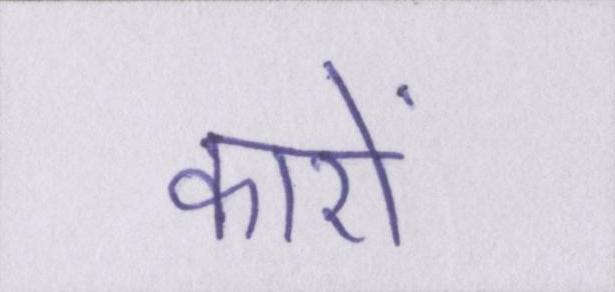 कारों